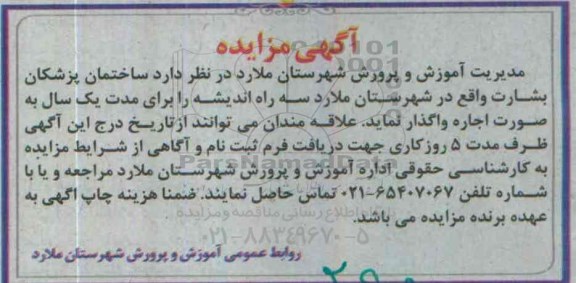 آگهی مزایده
مدیریت آموزش و پرورش شهرستان ملارد در نظر دارد ساختمان پزشکان
بشارت واقع در شهرستان ملارد سه راه اندیشه را برای مدت یک سال به
صورت اجاره واگذار نماید. علاقه مندان می توانند از تاریخ درج این آگهی
ظرف مدت ۵ روز کاری جهت دریافت فرم ثبت نام و آگاهی از شرایط مزایده
به کارشناسی حقوقی اداره آموزش و پرورش شهرستان ملارد مراجعه و یا با
شماره تلفن ۶۵۴۰۷۰۶۷-۰۲۱ تماس حاصل نمایند. ضمنا هزینه چاپ آگهی به
عهده برنده مزایده می باشد.
روابط عمومی آموزش و پرورش شهرستان ملارد
ParsNamadData
اطلاع رسانی مناقصه و مزایده
۰۲۱-۸۸۳۴۹۶۷۰-۵